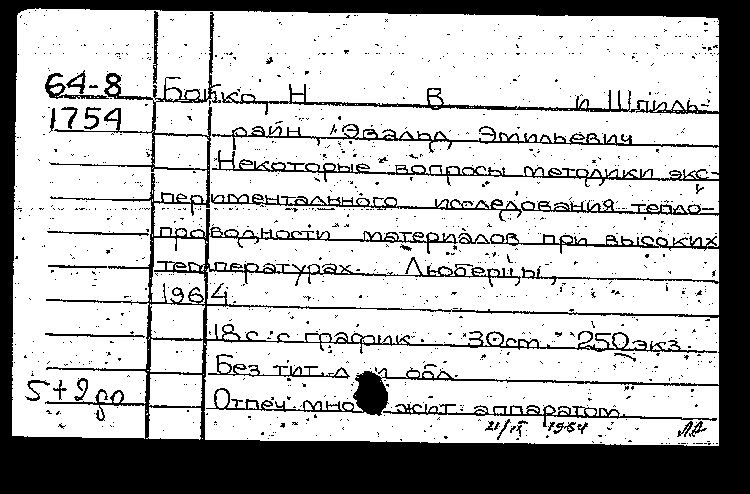 64-8 Бойко, Н В и Шпиль-
1754 райн, Эвальд Эмильевич
Некоторые вопросы методики экс-
периментального исследования тепло-
проводности материалов при высоких
температурах. Люберцы,
1964.
18 с. с график. 30 ст. 250 экз.
Без тит. л. и обл.
5+2 Отпеч. множит. аппаратом.
21/IX 1964